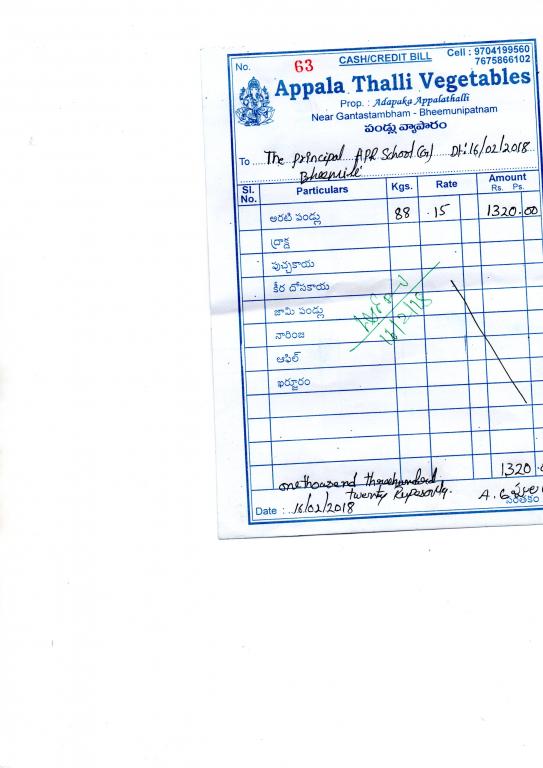 No. 63 CASH/CREDIT BILL Cell : 9704199560
7675866102
Appala Thalli Vegetables
Prop. : Adapaka Appalathalli
Near Gantastambham - Bheemunipatnam
పండ్లు వ్యాపారం
To The principal APR School (G) Dt: 16/02/2018
Sl. No. Particulars Kgs. Rate Amount Rs. Ps.
అరటి పండ్లు 88 .15 1320.00
ద్రాక్ష
పుచ్చకాయ
కీర దోసకాయ
జామి పండ్లు
నారింజ
ఆఫిల్
ఖర్జూరం
16/2/18
1320
one thousand
twenty
సంతకం
Date : 16/02/2018